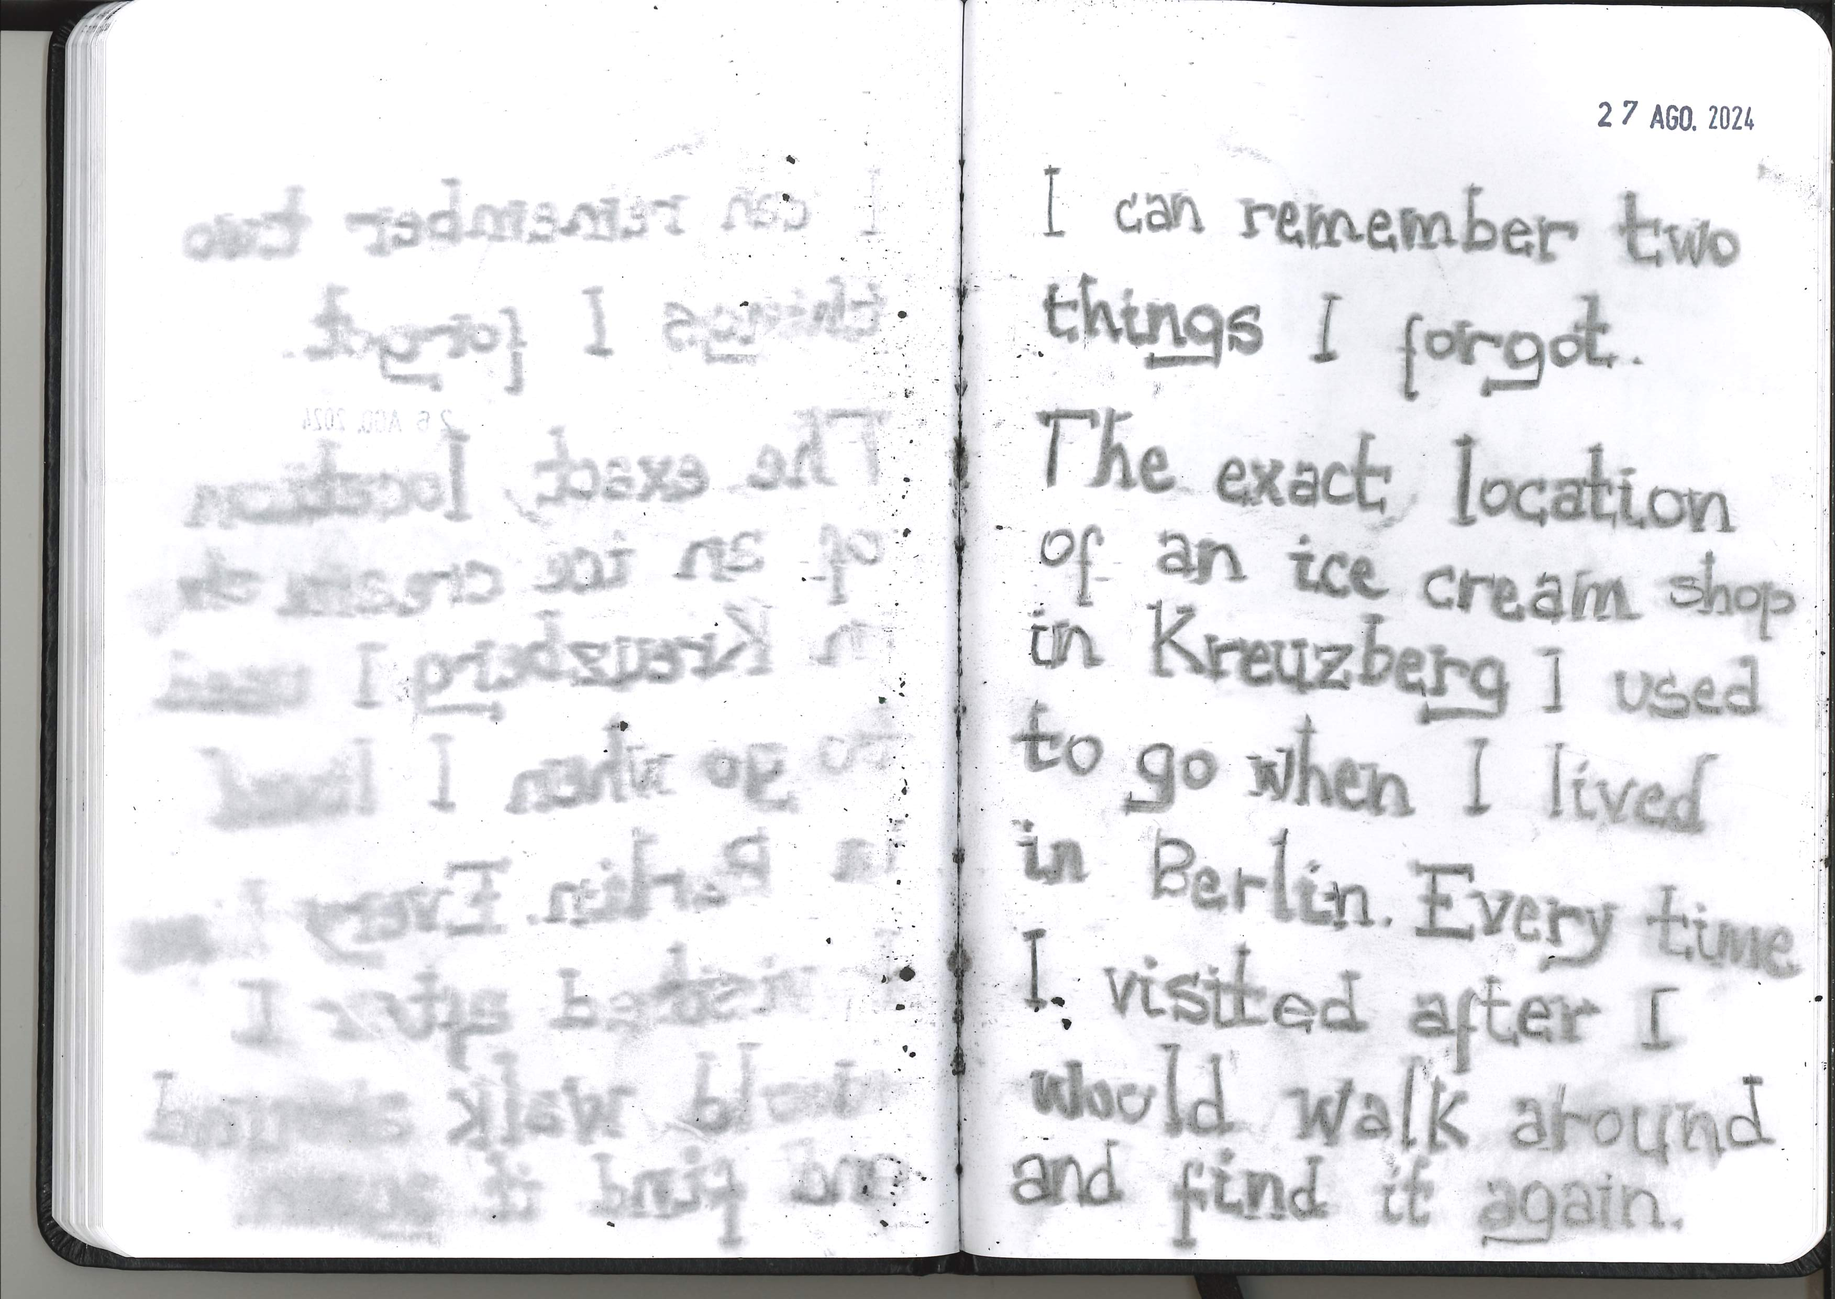 27 AGO. 2024
I can remember two
things I forgot.
The exact location
of an ice cream shop
in Kreuzberg I used
to go when I lived
in Berlin. Every time
I visited after I
would walk around
and find it again.
26 AGO. 2024